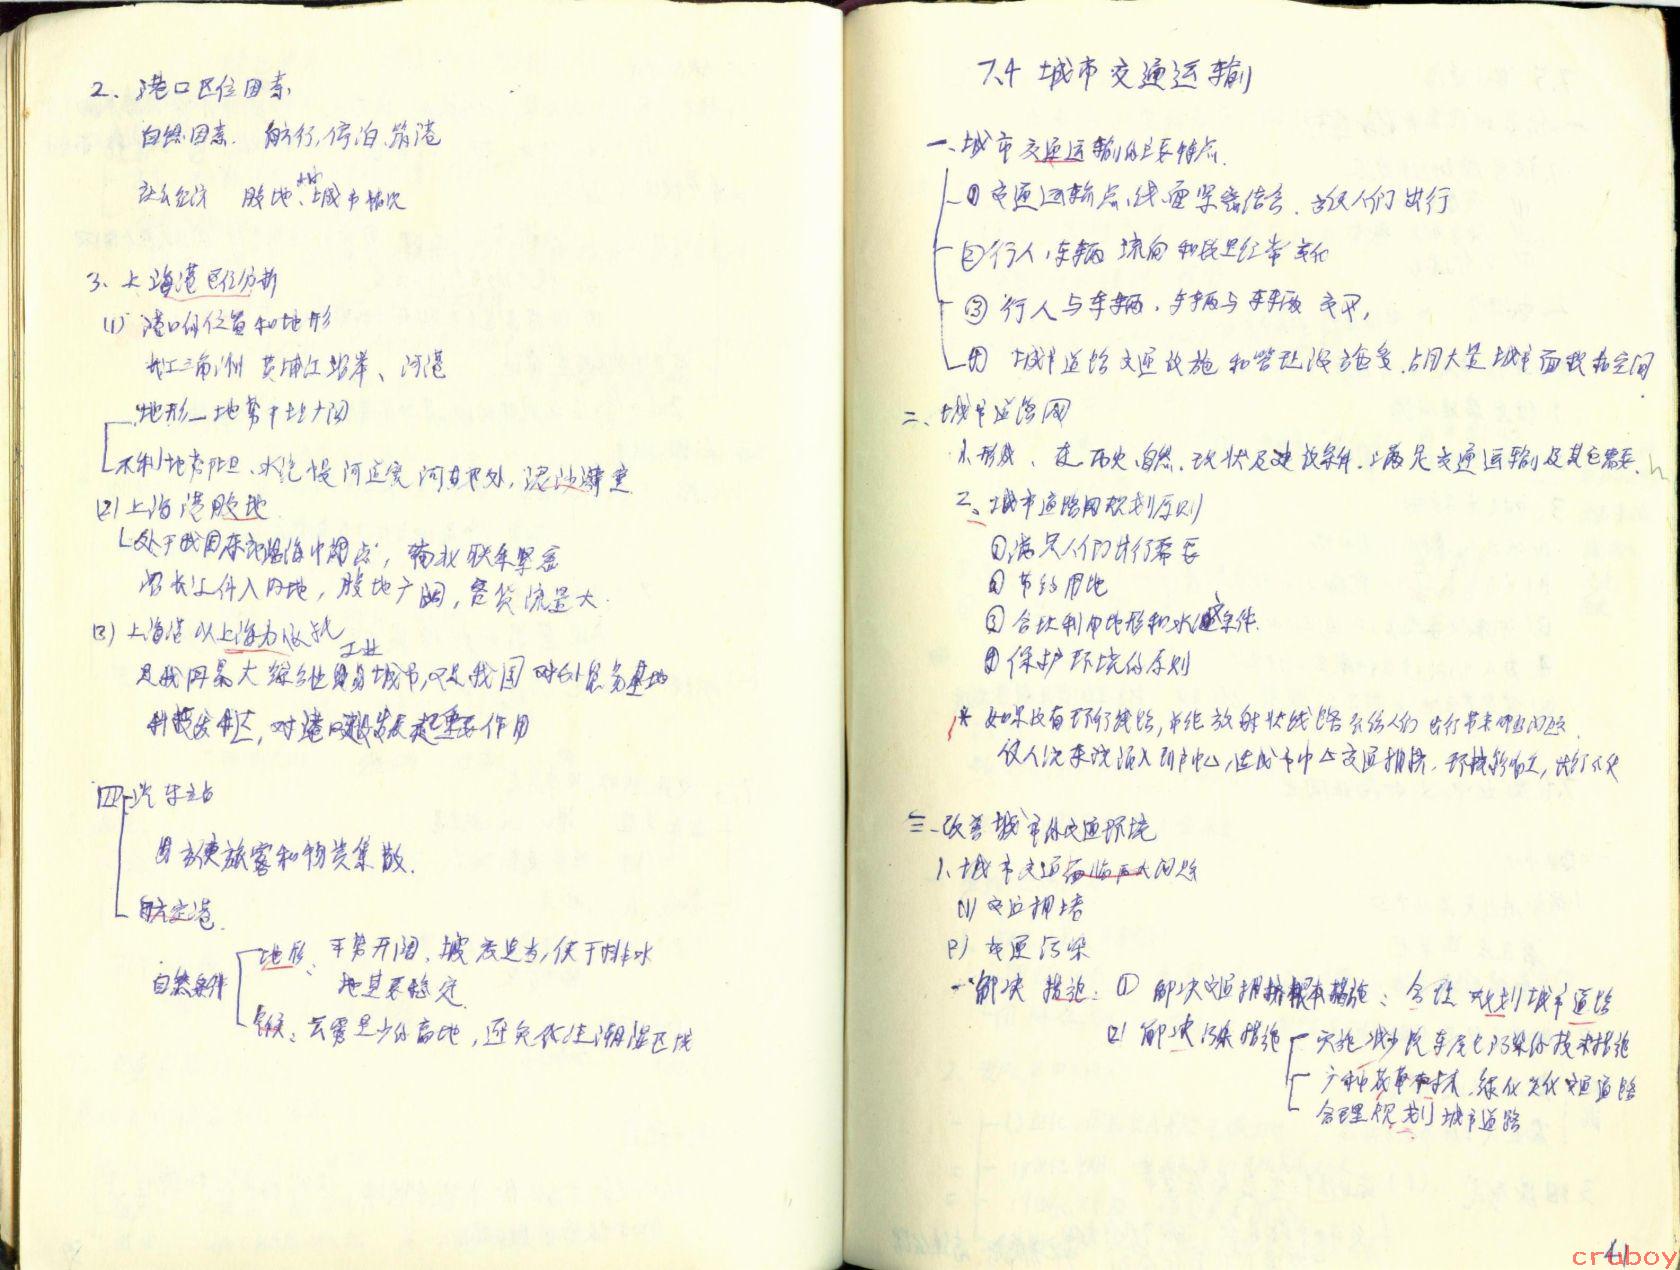 2、港口区位因素
自然因素. 航行,停泊、筑港
社会经济 腹地、城市依次
3、上海港区位分析
(1) 港口的位置和地形
长江三角洲 黄浦江沿岸、河港
地形—地势平坦广阔
不利 水流慢 河道宽 泥沙
(2) 上海港腹地
处于我国东部沿海中间点, 南北联系紧密
沿长江伸入内地, 腹地广阔, 客货流量大.
(3) 上海港以上海为依托
工业
是我国最大综合性贸易城市,又是我国对外贸易基地
科技发达,对港口建设发展起重要作用
四 汽车站
方便旅客和物资集散.
航空港
自然条件
地形: 平势开阔、坡度适当,便于排水
地基要稳定
气候: 云雾足少的高地, 避免低洼潮湿区域
7.4 城市交通运输
一、城市交通运输的主要特点.
① 交通运输点、线、面紧密结合、方便人们出行
② 行人、车辆 流向和流量经常变化
③ 行人与车辆、车辆与车辆交叉,
④ 城市道路交通设施和管理设施多、占用大量城市面积和空间
二、城市道路网
1. 形成、在历史、自然、现状及建设条件、满足交通运输及其它需要.
2、城市道路网规划原则
① 满足人们出行需要
② 节约用地
③ 合理利用地形和水文条件.
④ 保护环境的原则
* 如果没有环行线路,单纯放射状线路会给人们出行带来哪些问题.
使人流车流涌入市中心,造成市中心交通拥挤、环境影响大,出行不便
三、改善城市的交通环境
1、城市交通面临两大问题
(1) 交通拥堵
(2) 交通污染
解决措施: ① 解决交通拥挤根本措施: 合理规划城市道路
(2) 解决污染措施 实施减少汽车尾气污染的技术措施
广种花草树木、绿化美化交通道路
合理规划城市道路
41
cruboy